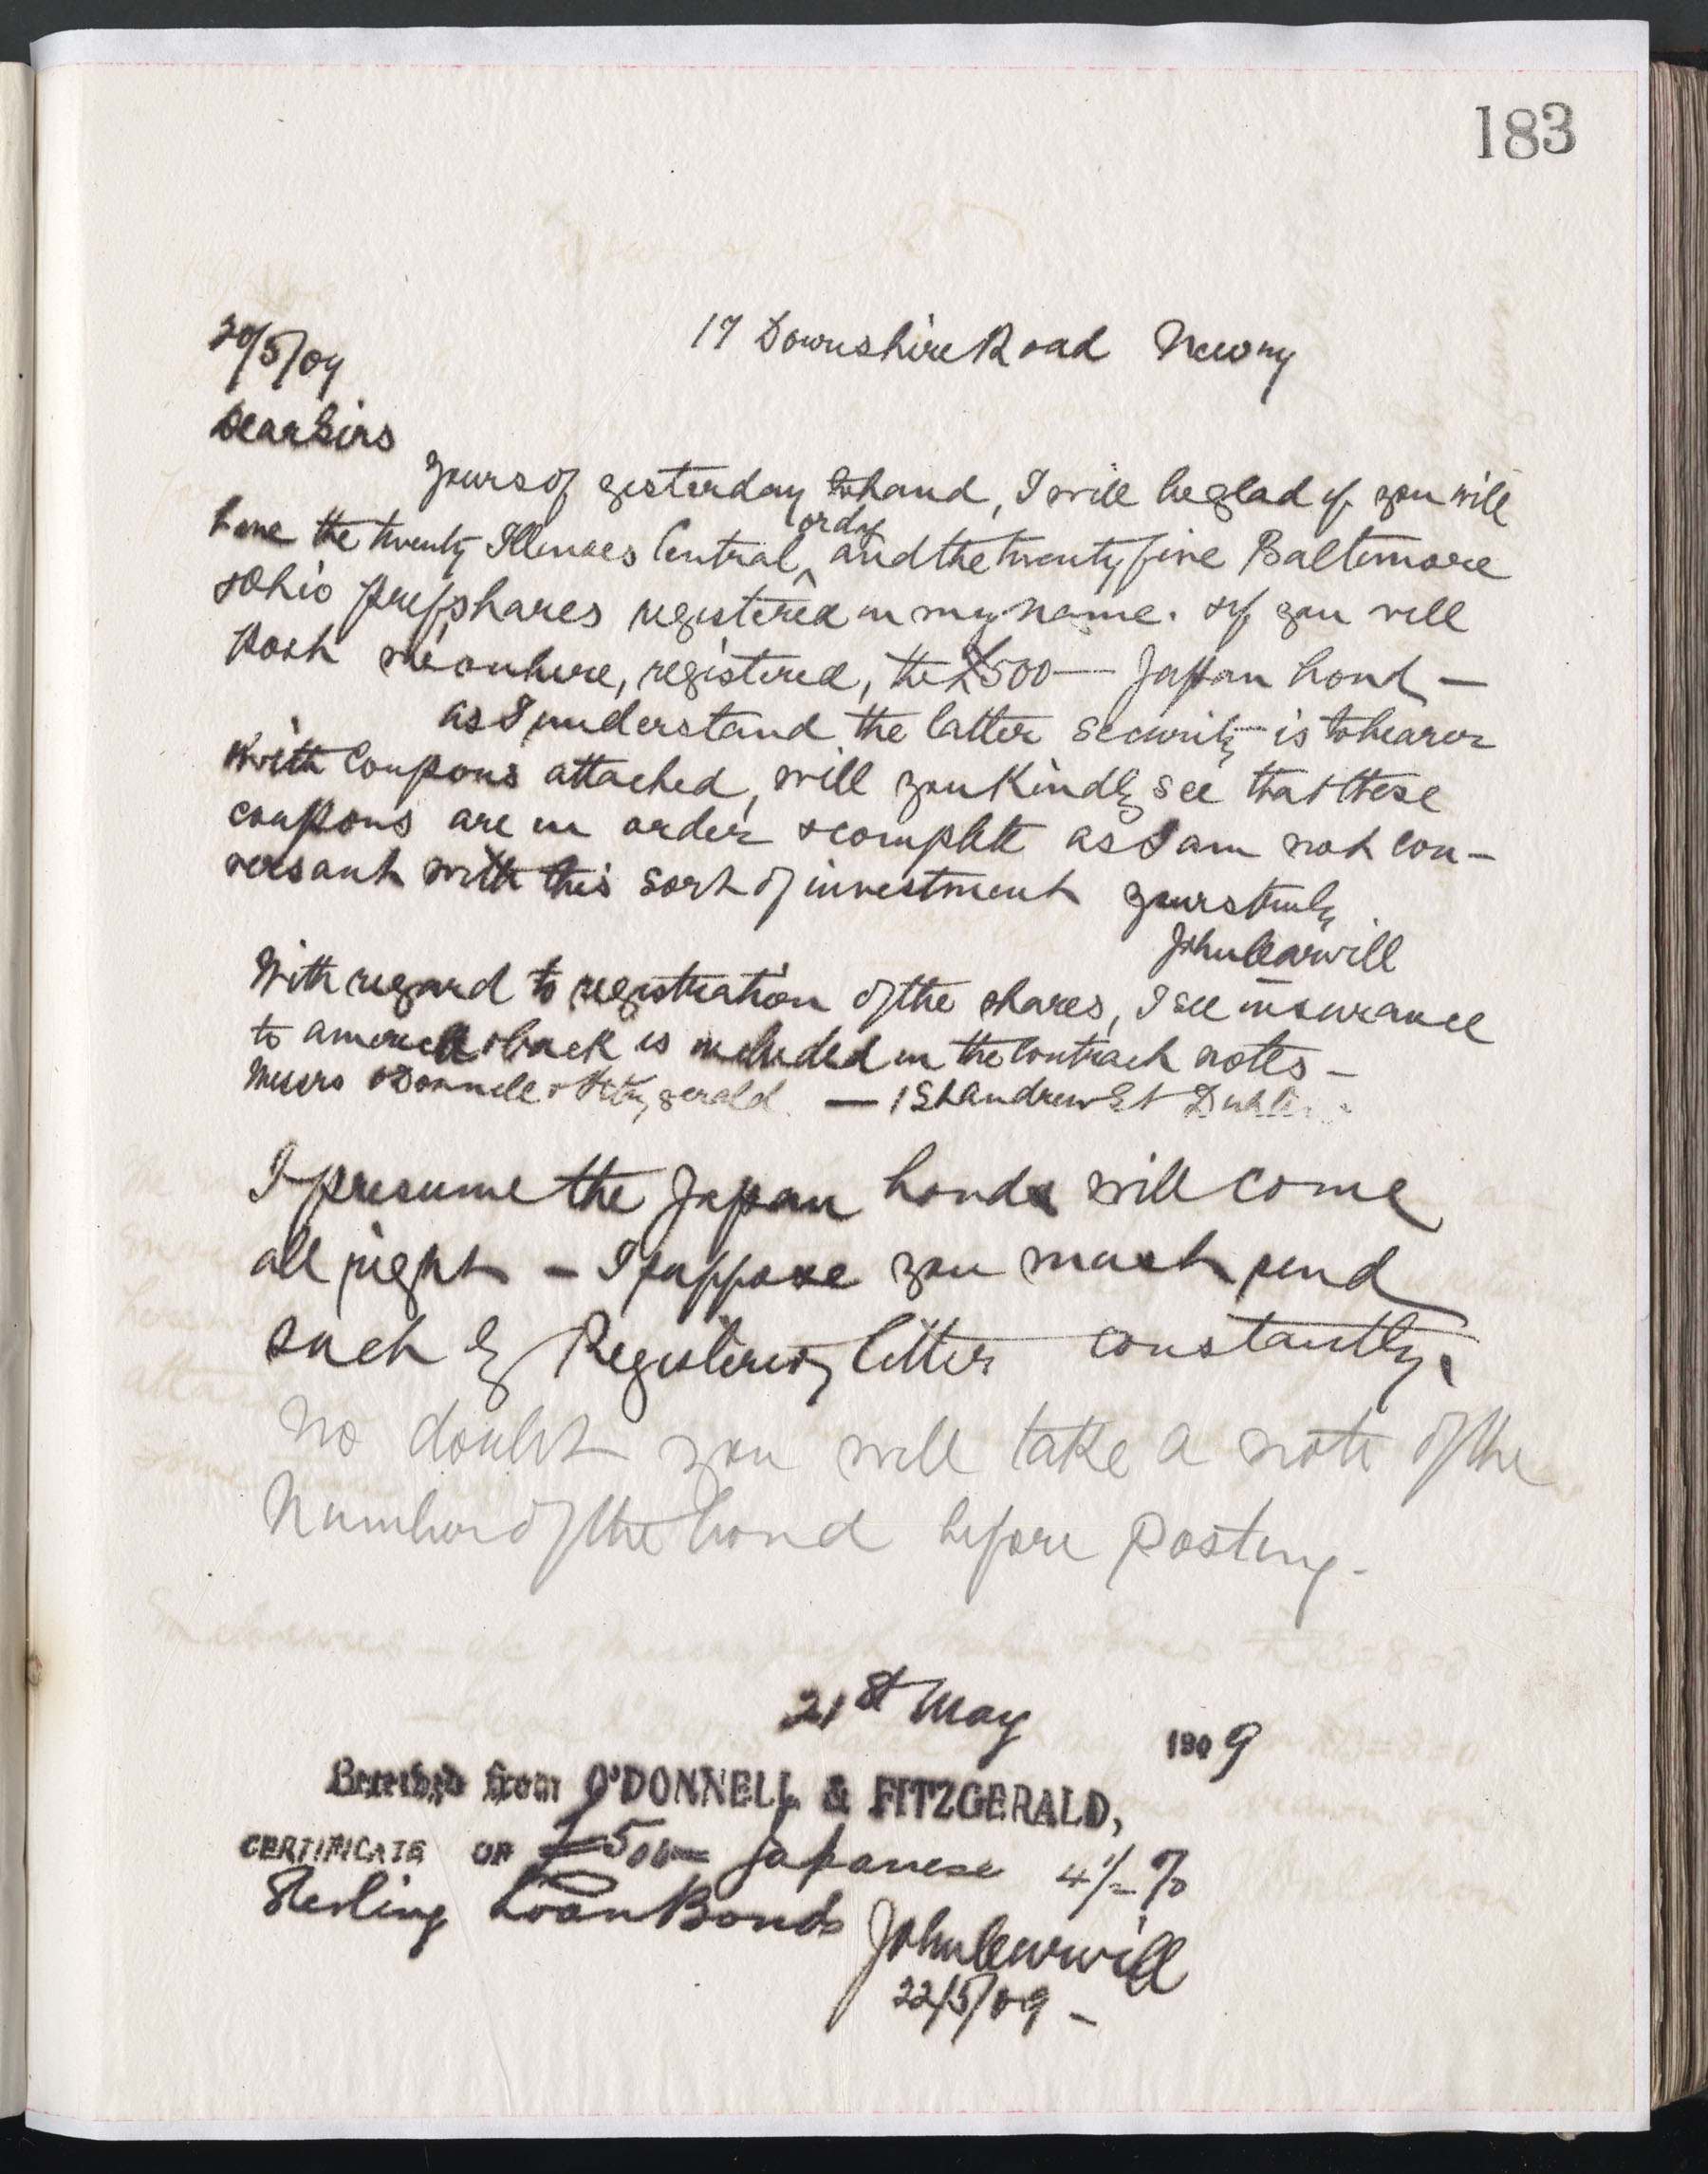 183
20/5/09
17 Downshire Road Newry
Dear Sirs
Yours of yesterday to hand, I will be glad if you will
have the twenty Illinoes Central ordy and the twenty five Baltimore
& Ohio pref shares registered in my name. & if you will
Post me on here, registered, the £500 — Japan bond —
as I understand the latter security is to bearer
with Coupons attached, will you Kindly see that these
coupons are in order & complete as I am not con-
versant with this sort of investment yours truly
John Carvill
With regard to registration of the shares, I see insurance
to america & back is included in the contract notes —
Messrs O'Donnell & Fitzgerald — 1 St Andrew St Dublin
I presume the Japan bonds will come
all right — I suppose you must send
such by Registered letter constantly.
No doubt you will take a note of the
Number of the bond before Posting.
21st May 1909
Received from O'DONNELL & FITZGERALD,
CERTIFICATE OF £500 Japanese 4½ %
Sterling Loan Bonds
John Carvill
22/5/09 —